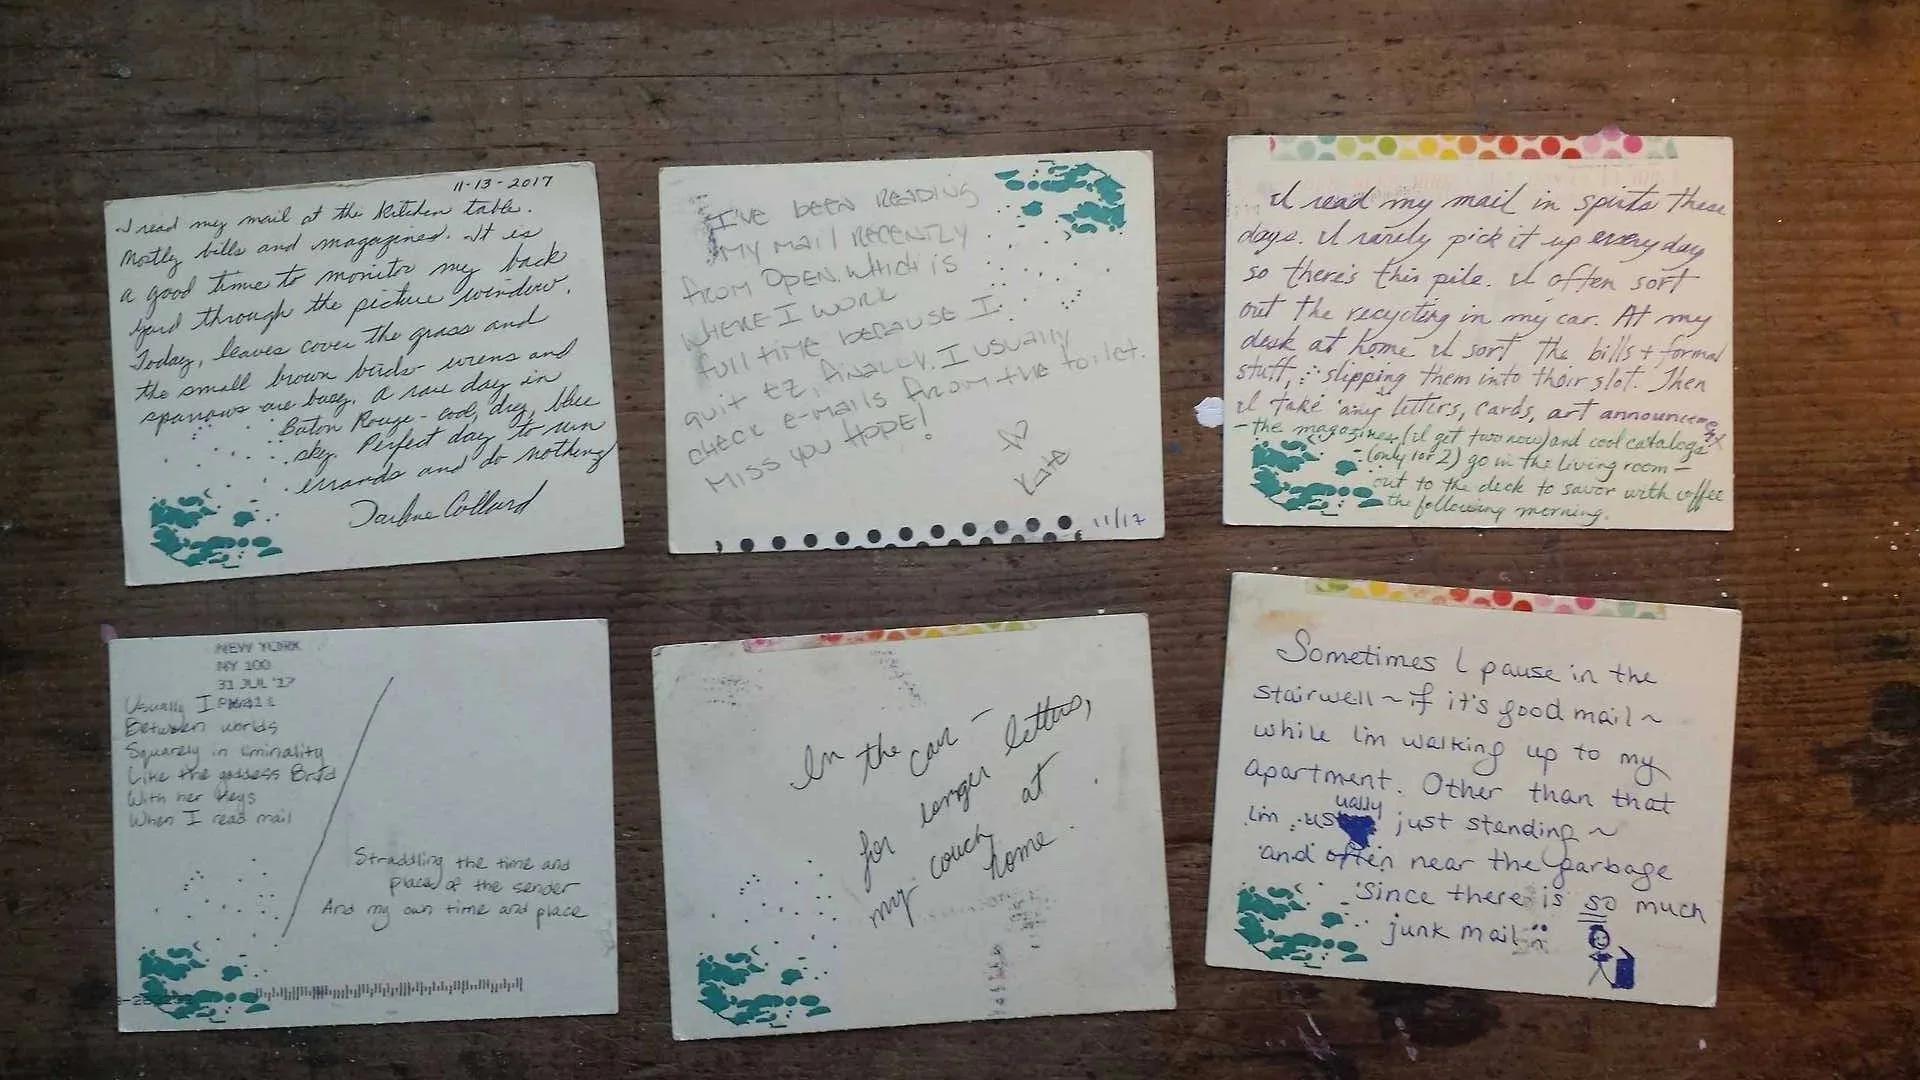 11-13-2017
I read my mail at the kitchen table.
Mostly bills and magazines. It is
a good time to monitor my back
yard through the picture window.
Today, leaves cover the grass and
the small brown birds- wrens and
sparrows are busy. A rare day in
Baton Rouge- cool, dry, blue
sky. Perfect day to run
errands and do nothing
Darlene
I'VE BEEN READING
MY MAIL RECENTLY
FROM OPEN. WHICH IS
WHERE I WORK
FULL TIME BECAUSE I
QUIT EZ, FINALLY. I USUALLY
CHECK E-MAILS FROM THE TOILET.
MISS YOU HOPE!
Kate
11/17
I read my mail in spirts these
days. I rarely pick it up every day
so there's this pile. I often sort
out the recycting in my car. At my
desk at home I sort the bills + formal
stuff, slipping them into their slot. Then
I take any letters, cards, art announcements
- the magazines (I get two now) and cool catalogs
- (only 1 or 2) go in the living room -
out to the deck to savor with coffee
the following morning.
NEW YORK
NY 100
31 JUL '17
Usually I
Between worlds
Squarely in liminality
Like the goddess Brid
With her keys
When I read mail
Straddling the time and
place of the sender
And my own time and place
In the car –
for longer letters,
my couch at
home.
Sometimes I pause in the
stairwell ~ if it's good mail ~
while I'm walking up to my
apartment. Other than that
I'm usually just standing ~
and often near the garbage
since there is so much
junk mail